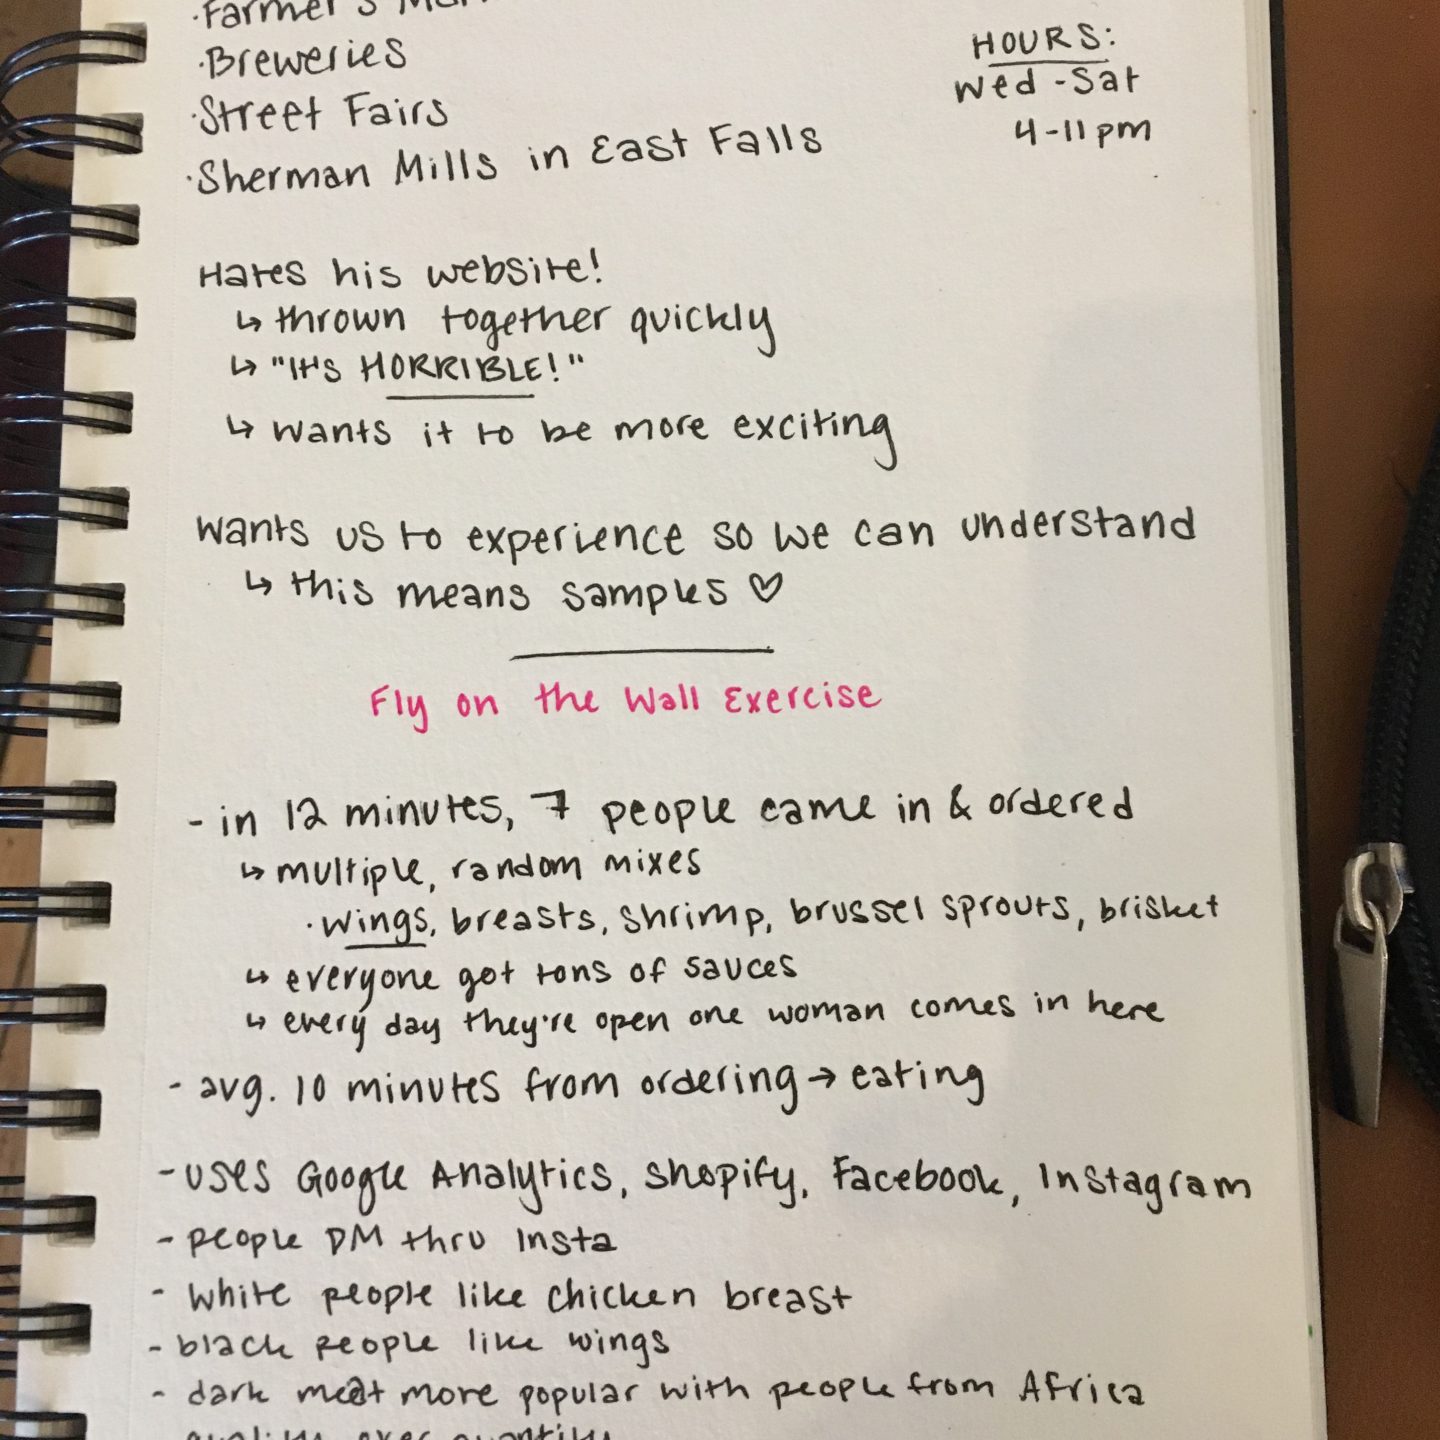 ·Farmer's
·Breweries
·Street Fairs
·Sherman Mills in East Falls
HOURS:
Wed - Sat
4-11pm
Hates his website!
↳ thrown together quickly
↳ "It's HORRIBLE!"
↳ wants it to be more exciting
Wants us to experience so we can understand
↳ this means samples ♡
Fly on the Wall Exercise
- in 12 minutes, 7 people came in & ordered
↳ multiple, random mixes
· wings, breasts, shrimp, brussel sprouts, brisket
↳ everyone got tons of sauces
↳ every day they're open one woman comes in here
- avg. 10 minutes from ordering → eating
- uses Google Analytics, Shopify, Facebook, Instagram
- people DM thru Insta
- white people like chicken breast
- black people like wings
- dark meat more popular with people from Africa
quality over quantity